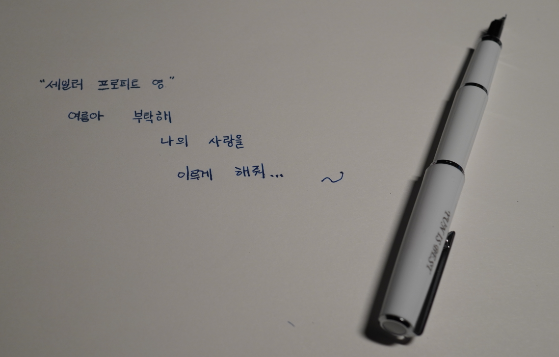 "세일러 프로피트 영"
여름아 부탁해
나의 사랑을
이루게 해줘... ~